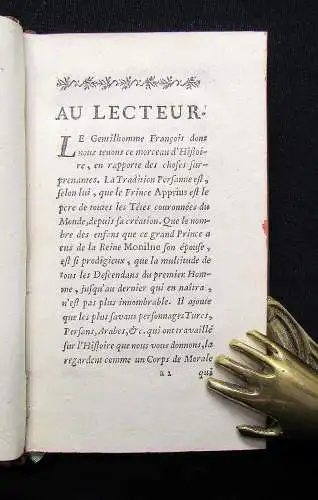 AU LECTEUR.
LE Gentilhomme François dont
nous tenons ce morceau d'Histoi-
re, en rapporte des choses sur-
prenantes. La Tradition Persanne est,
selon lui, que le Prince Apprius est le
pere de toutes les Têtes couronnées du
Monde, depuis sa création. Que le nom-
bre des enfans que ce grand Prince a
eus de la Reine Monilne son épouse,
est si prodigieux, que la multitude de
tous les Descendans du premier Hom-
me, jusqu'au dernier qui en naîtra,
n'est pas plus innombrable. Il ajoute
que les plus savans personnages Turcs,
Persans, Arabes, &c. qui ont travaillé
sur l'Histoire que nous vous donnons, la
regardent comme un Corps de Morale
a 2 qui